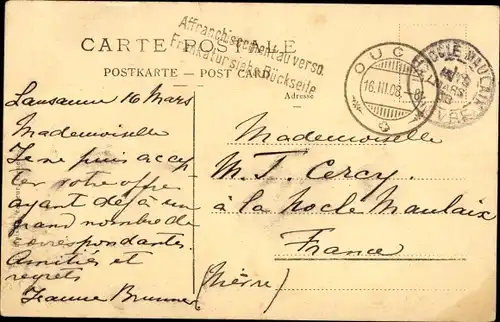 CARTE POSTALE
POSTKARTE – POST CARD
Adresse
Affranchissement au verso.
Frankatur siehe Rückseite
OUCHY
16.III.08.-8
Lausanne 16 Mars
Mademoiselle
Je ne puis accep
ter votre offre
ayant déjà un
grand nombre de
correspondantes.
Amitiés et
regrets
Jeanne Brunner
Mademoiselle
M. T. Cercy.
à la Rocle Maulaix
France
(Nièvre)